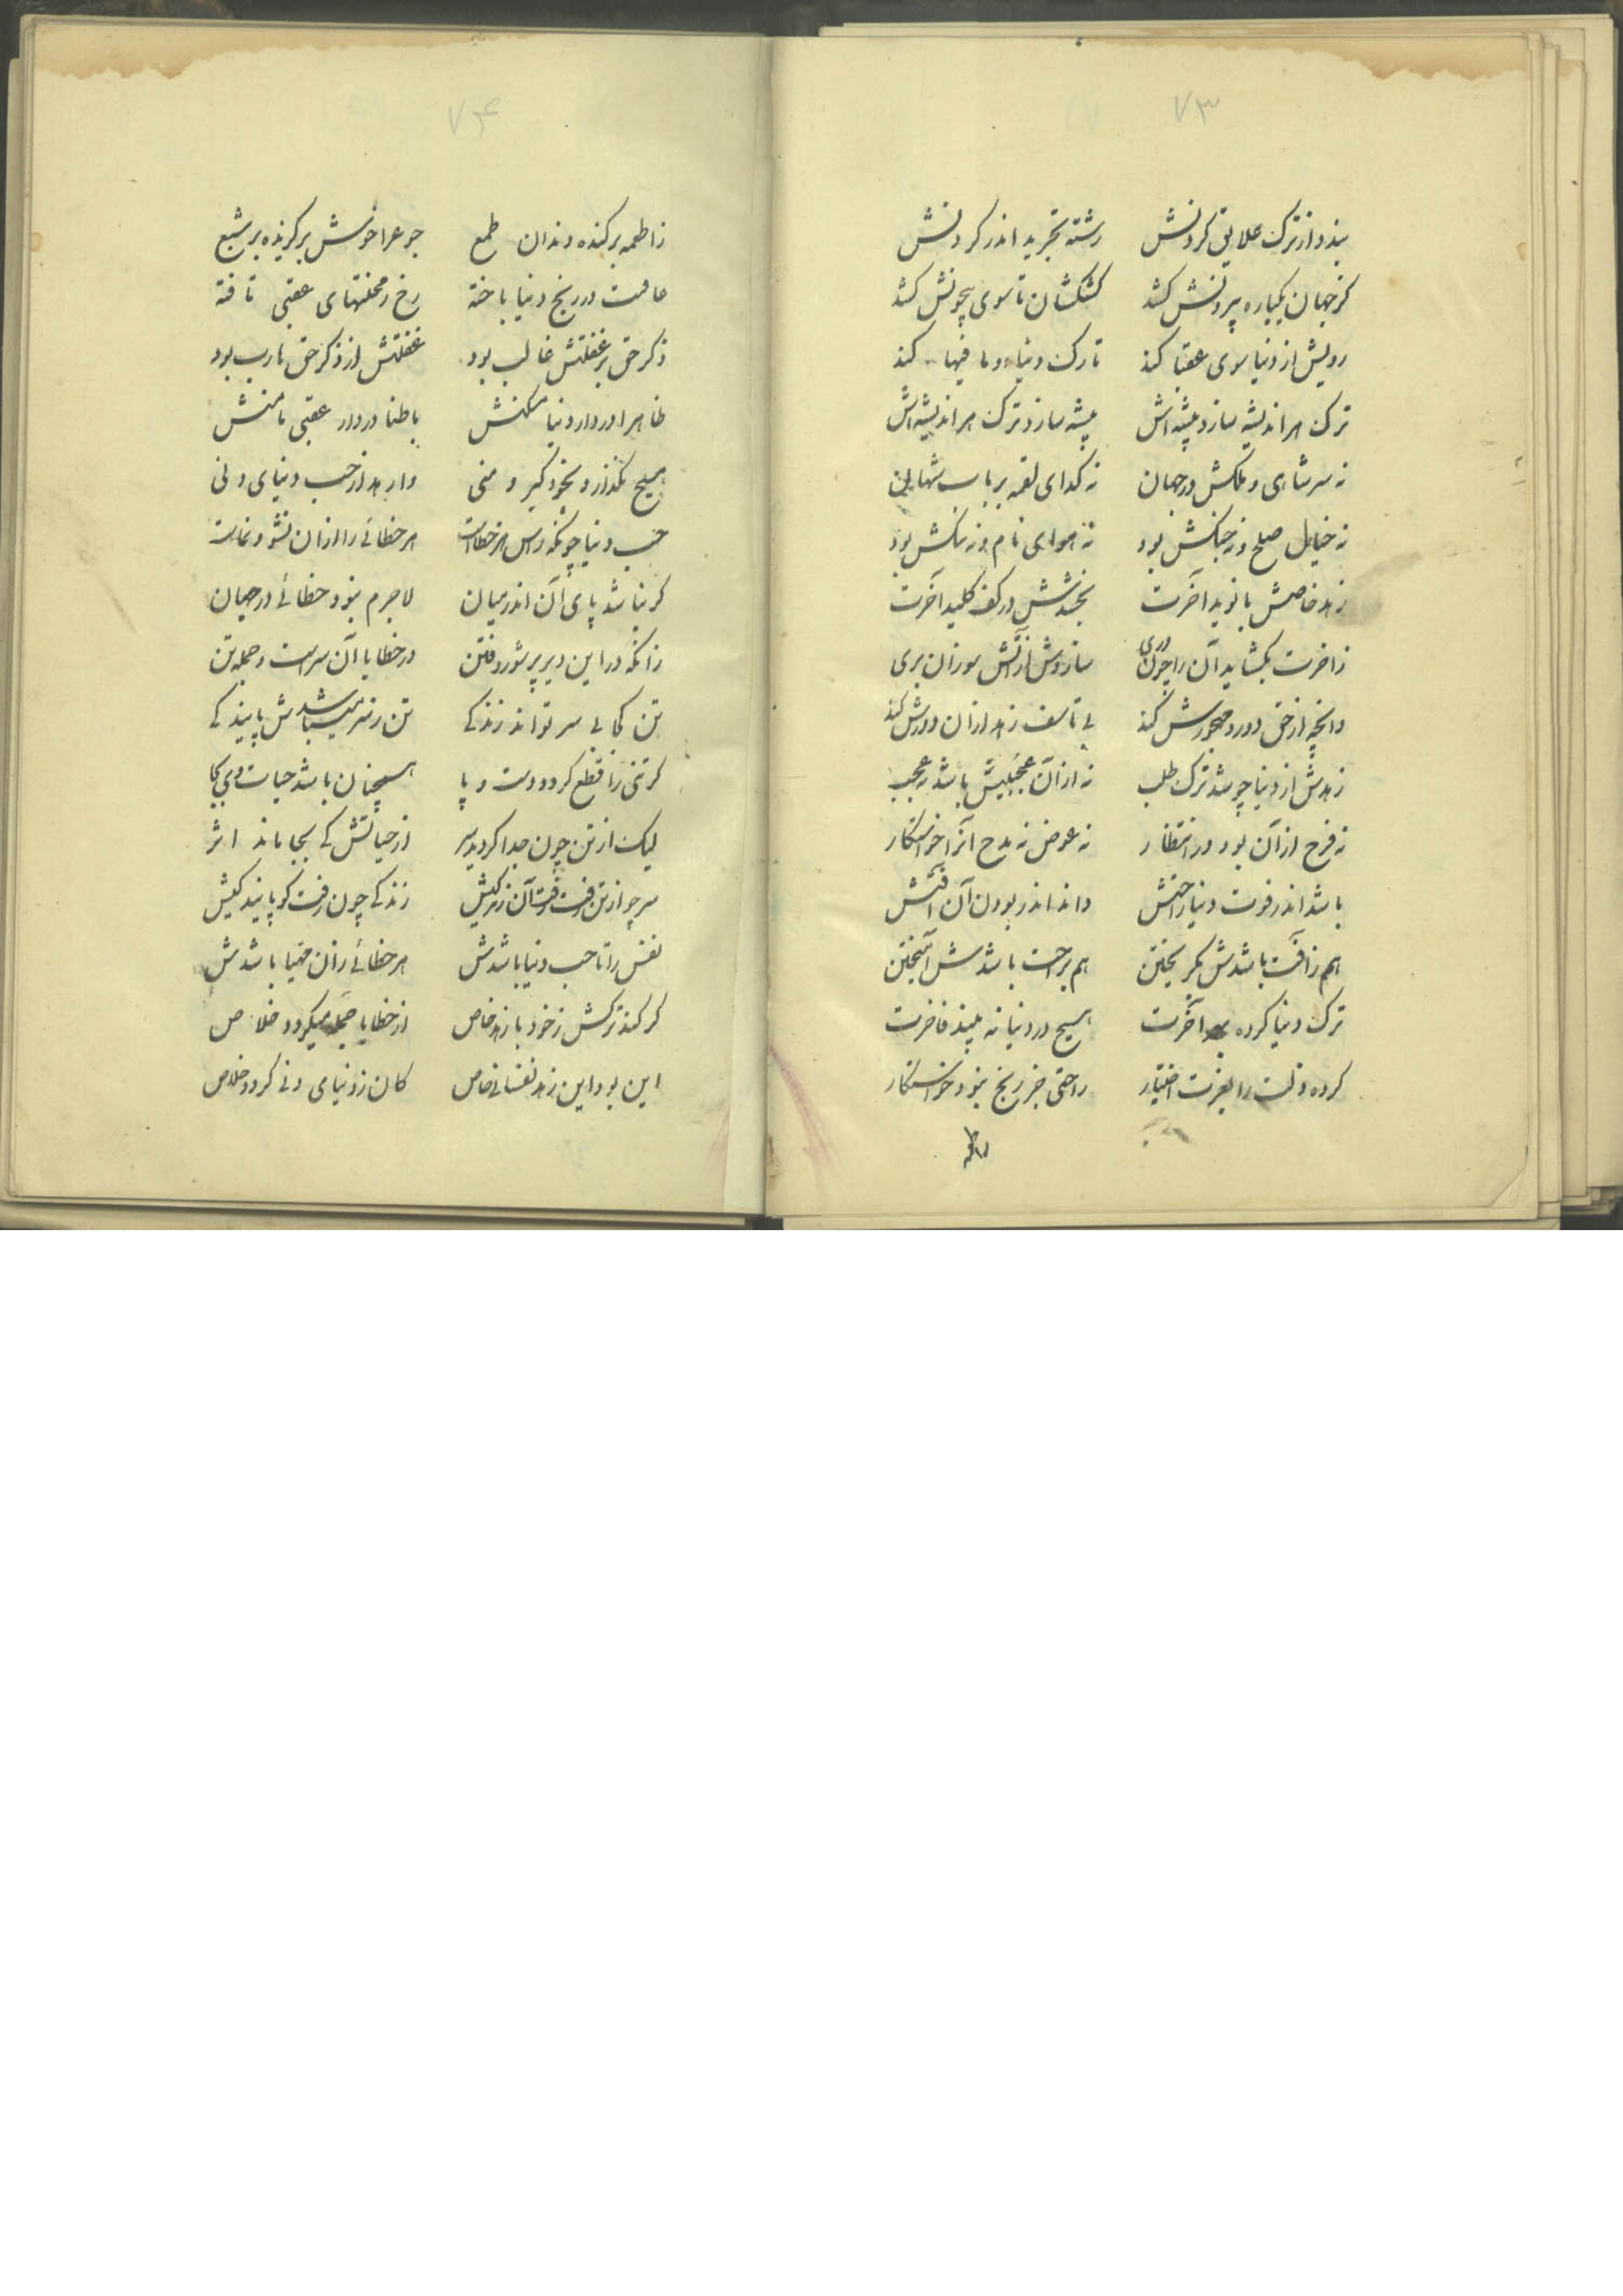 ۷۳
بندد از ترک علایق کردنش رشته تجرید اندر کردنش
کز جهان یکباره بیرونش کشد کشکشان تا سوی بیچونش کشد
رویش از دنیا سوی عقبا کند تارک دنیا و ما فیها کند
ترک هر اندیشه سازد پیشه‌اش پیشه سازد ترک هر اندیشه‌اش
نه سر شاهی و ملکش در جهان نه کدای لقمه بر باب شهان
نه خیال صلح و نه جنکش بود نه هوای نام و نه ننکش بود
زهد خاصش با نوید آخرت بخشدش در کف کلید آخرت
زاخرت بکشاید آن را چون دری سازدش از آتش سوزان بری
وانچه از حق دور و مهجورش کند بی تاسف زهد ازان دورش کند
زهدش از دنیا چو شد ترک طلب نه ازان عجبیش باشد نه عجب
نه فرح از آن بود در انتظار نه عوض نه مدح آنرا خواستکار
باشد اندر فوت دنیا راحتش داند اندر بودن آن آفتش
هم ز آفت باشدش بکریختن هم براحت باشدش آمیختن
ترک دنیا کرده بهر آخرت هیچ در دنیا نه بیند فاخرت
کرده ذلت را بعزت اختیار راحتی جز رنج نبود خواستکار
زاطمه
۷۴
زاطمه برکنده دندان طمع جوع را خوش برکزیده بر شبع
عافیت در رنج دنیا باخته رخ ز محنتهای عقبی تافته
ذکر حق بر غفلتش غالب بود غفلتش از ذکر حق هارب بود
ظاهرا در دار دنیا مسکنش باطنا در دار عقبی مامنش
هیچ نکذارد بخود کبر و منی وارهد از حب دنیای دنی
حب دنیا چونکه راس هر خطاست هر خطائی را ازان نشو و نماست
کر نباشد پای آن اندر میان لاجرم نبود خطائی در جهان
زانکه در این دیر پر شور و فتن در خطایا آن سر است و جمله تن
تن کجا بی سر تواند زندکی تن ز سر میباشدش پایندکی
کر تنی را قطع کردد دست و پا همچنان باشد حیات وی بجا
لیک از تن چون جدا کردید سر از حیاتش کی بجا ماند اثر
سر چو از تن رفت رفت آن زندکیش زندکی چون رفت کو پایندکیش
نفس را تا حب دنیا باشدش هر خطائی زان مهیا باشدش
کر کند ترکش ز خود با زهد خاص از خطایا جمله میکردد خلاص
این بود این زهد نفسانی خاص کان ز دنیای دنی کردد خلاص